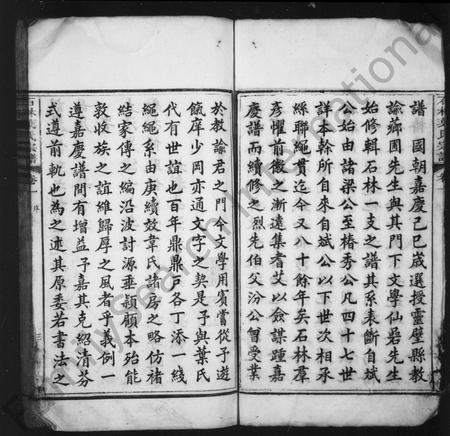 譜 國朝嘉慶己巳歲選授靈璧縣教
諭薌圃先生與其門下文學仙砦先生
始修輯石林一支之譜其系表斷自斌
公始由諸梁公至椿秀公凡四十七世
詳本幹所自來自斌公以下世次相承
絲聯繩貫迄今又八十餘年矣石林羣
彥懼前徽之漸遠集耆艾以僉謀踵嘉
慶譜而續修之烈先伯父汾公曾受業
於教諭君之門今文學用賓嘗從予遊
甌庠少岡亦通文字之契是予與葉氏
代有世誼也百年鼎鼎戸各丁添一綫
繩繩系由庚續效韋氏諸房之略仿褚
結家傳之編沿波討源垂顙顧本殆能
敦收族之誼維歸厚之風者乎義例一
遵嘉慶譜間有增益予嘉其克紹清芬
式遵前軌也為之迹其原委若書法之
石林葉氏宗譜 卷一 序
FamilySearch International